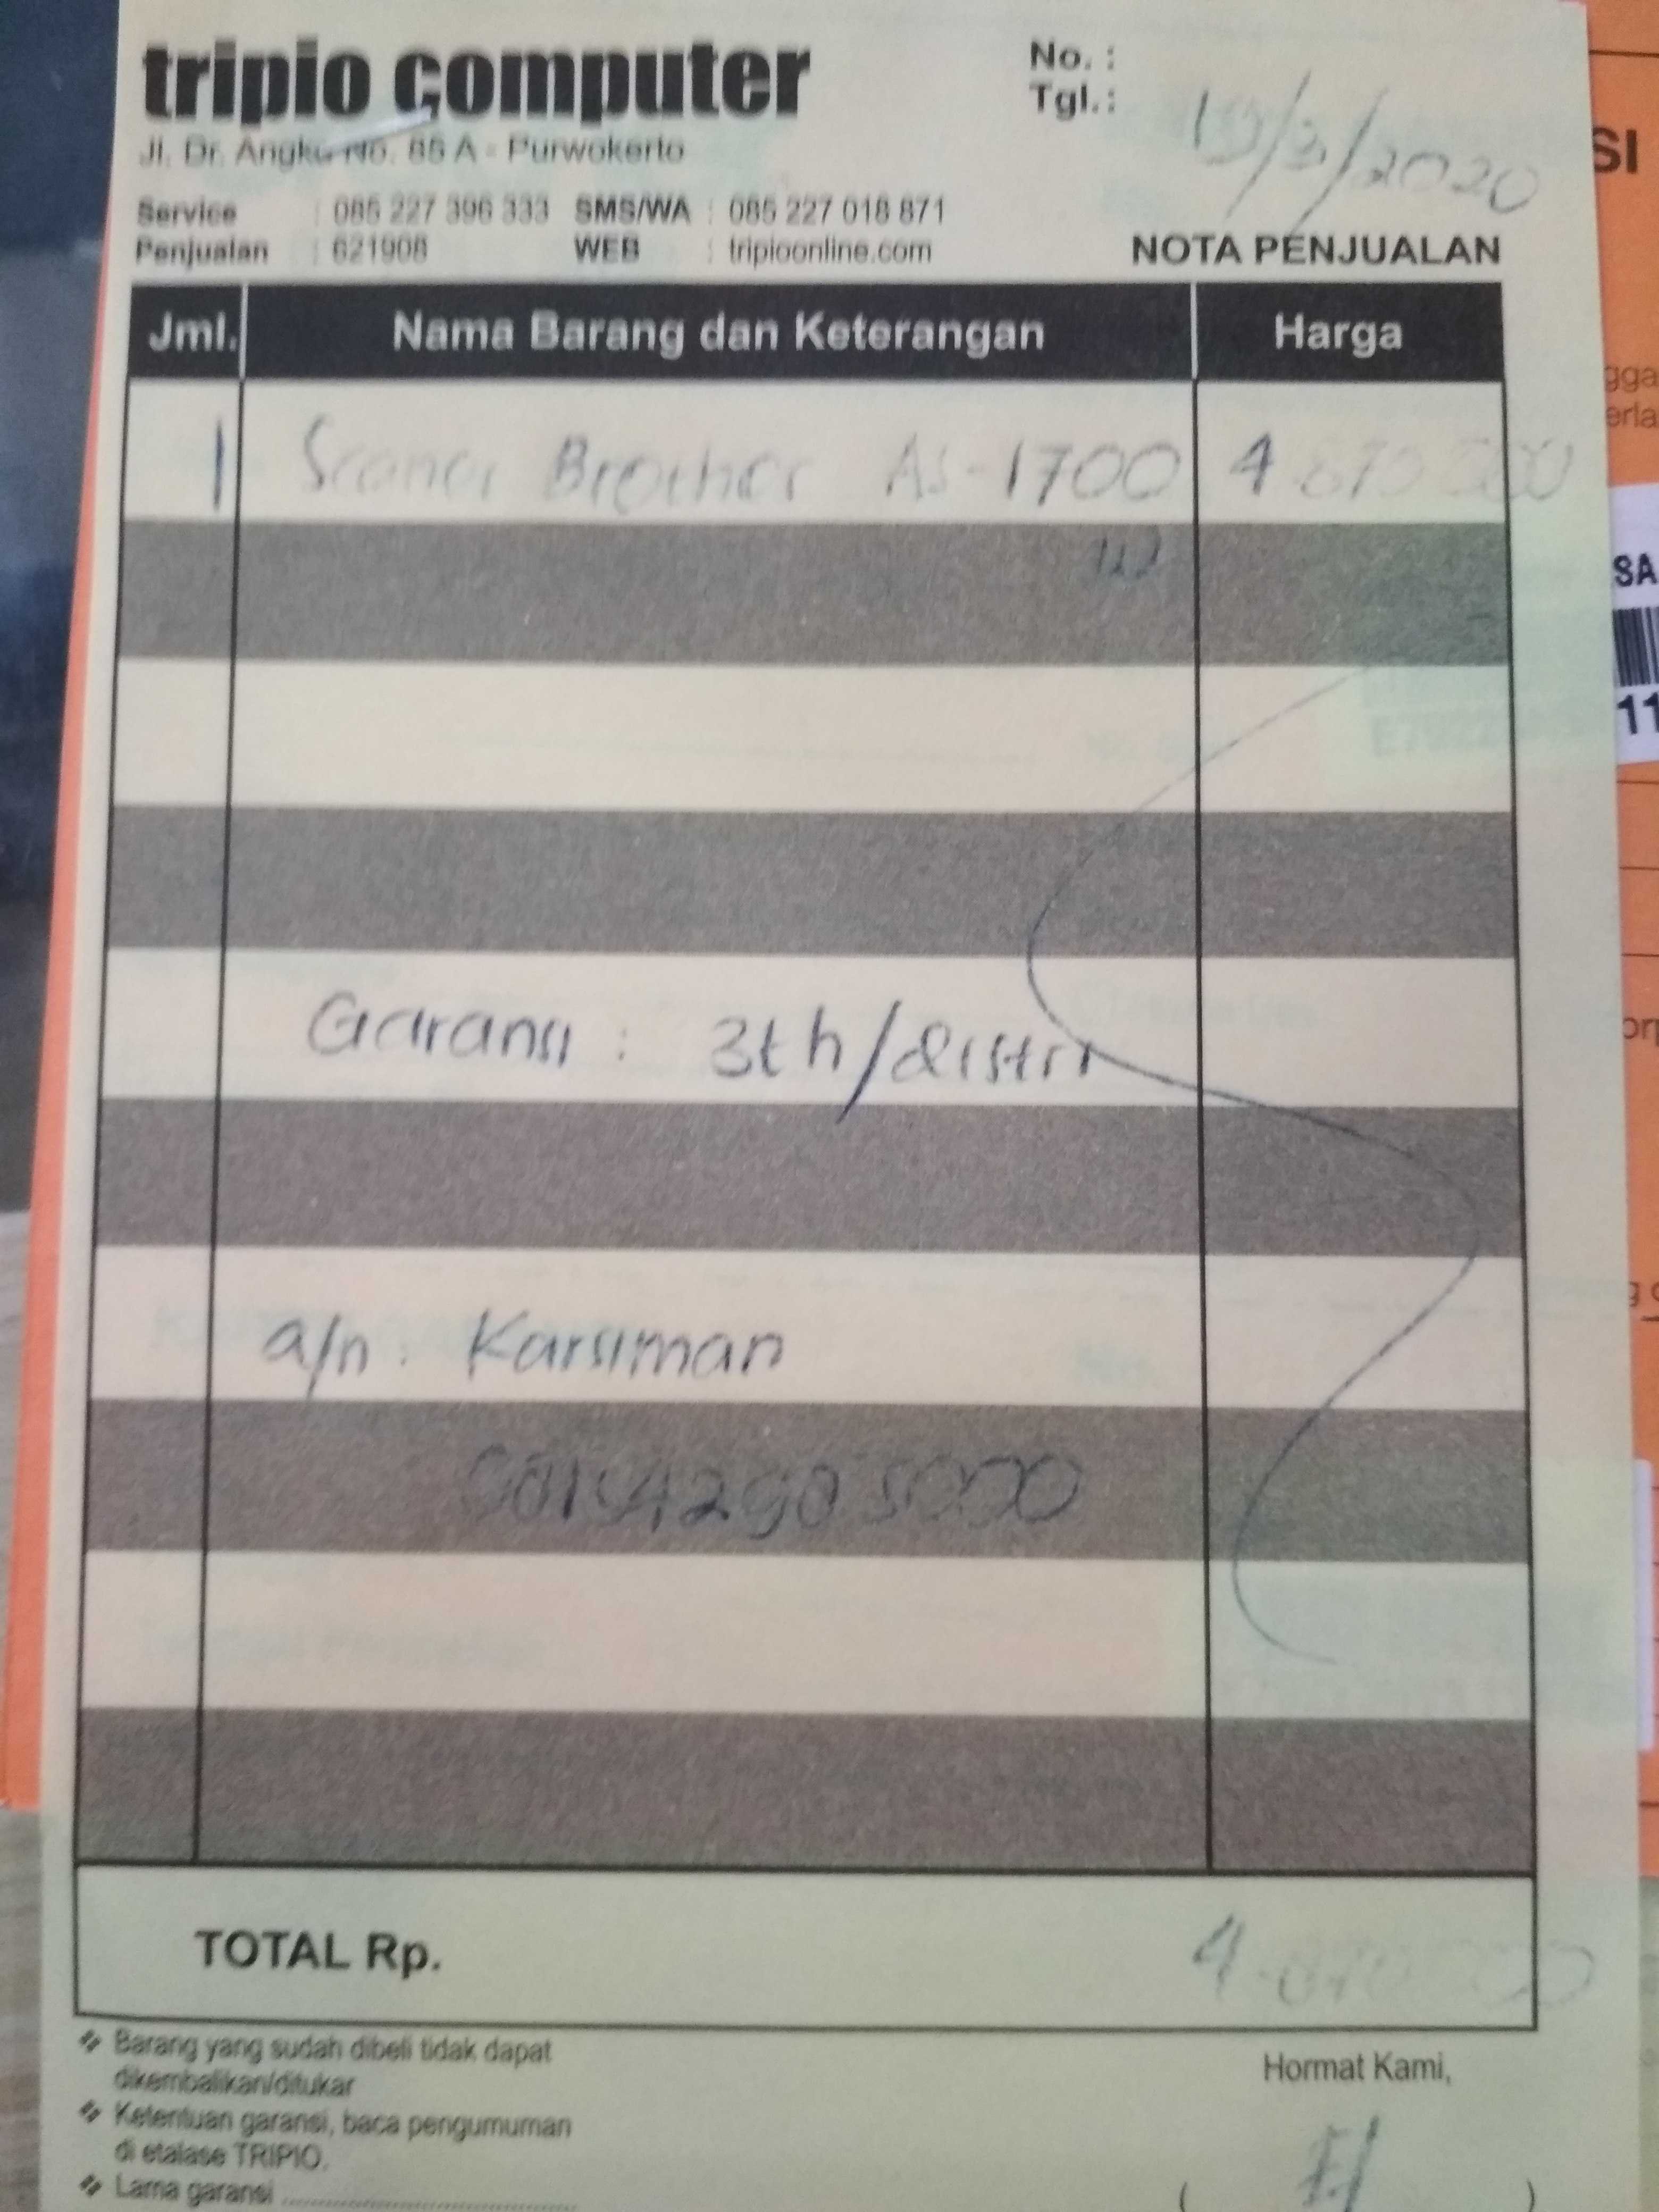 tripio computer
Jl. Dr. Angka No. 85 A - Purwokerto
Service : 085 227 396 333 SMS/WA : 085 227 018 871
Penjualan : 621908 WEB : tripioonline.com
No. :
Tgl.: 19/3/2020
NOTA PENJUALAN
Jml. Nama Barang dan Keterangan Harga
1 Scaner Brother AS-1700
W
Garansi : 3th/distri
a/n. Karsiman
TOTAL Rp.
Barang yang sudah dibeli tidak dapat
dikembalikan/ditukar
Ketentuan garansi, baca pengumuman
di etalase TRIPIO.
Lama garansi ........................
Hormat Kami,
( )
SI
gga
erla
SA
11